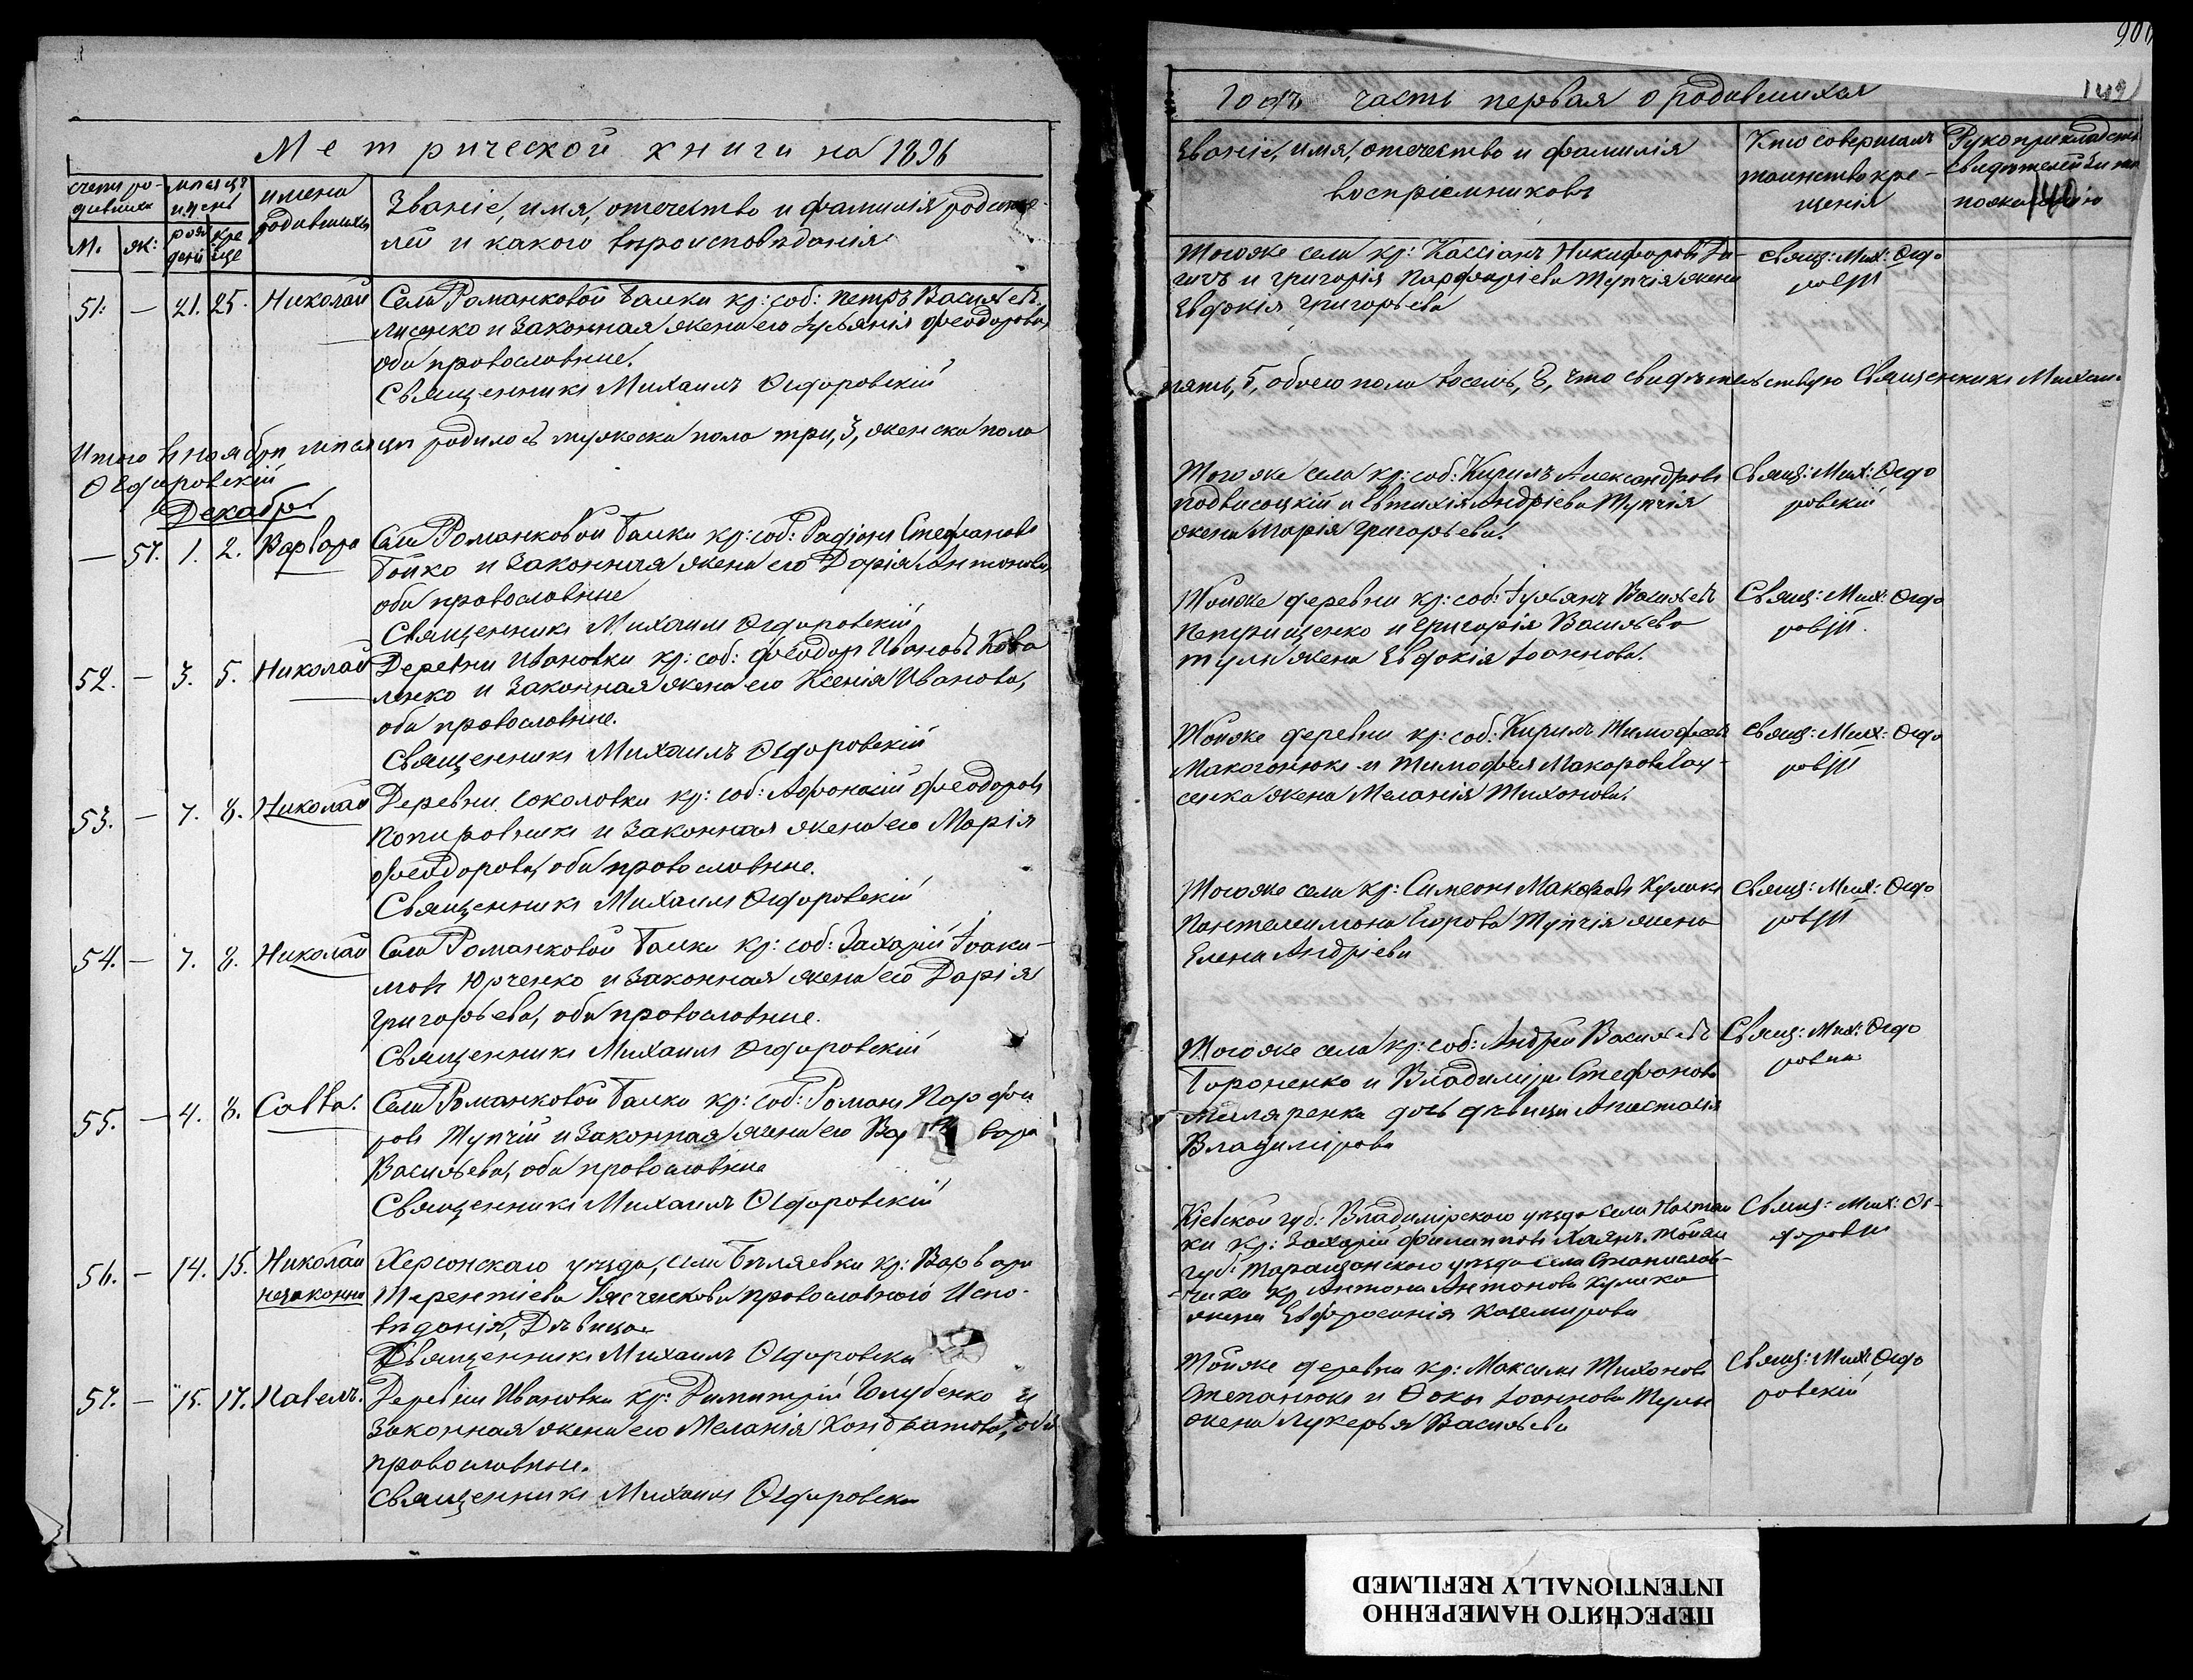 Метрической книги на 1896
счетъ ро-
дивших
мѣсяцъ
и день
имена
родившихся
Званіе, имя, отечество и фамилія родите-
лей и какого вѣроисповѣданія
М. Ж:
рож
деній
кре
ще
51. — 21. 25. Николай
Села Романковой Балки кр: соб: Петръ Васильевъ
Лисенко и законная жена его Іуліанія Феодорова,
оба православные.
Священникъ Михаилъ Огдоровскій
Итого въ ноябрѣ мѣсяцѣ родилось мужеска пола три, 3, женска пола
Огдоровскій
Декабрь
— 57. 1. 2. Варвара
Села Романковой Балки кр: соб: Радіонъ Стефановъ
Бойко и законная жена его Дарія Антонова,
оба православные
Священникъ Михаилъ Огдоровскій
52. — 3. 5. Николай
Деревни Ивановки кр: соб: Феодоръ Ивановъ Кова
ленко и законная жена его Ксенія Иванова,
оба православные.
Священникъ Михаилъ Огдоровскій
53. — 7. 8. Николай
Деревни Соколовки кр: соб: Афонасій Феодоровъ
и законная жена его Марія
Феодорова, оба православные.
Священникъ Михаилъ Огдоровскій
54. — 7. 8. Николай
Села Романковой Балки кр: соб: Захарій Іоаки-
мовъ Юрченко и законная жена его Дарія
Григорьева, оба православные.
Священникъ Михаилъ Огдоровскій
55. — 4. 8. Савва.
Села Романковой Балки кр: соб: Романъ Парфи
ровъ Тупчій и законная жена его Вар вара
Васильева, оба православные
Священникъ Михаилъ Огдоровскій
56. — 14. 15. Николай
незаконн
Херсонскаго уѣзда, села Бѣляевки кр: Варвара
Терентіева православнаго Испо-
вѣданія, Дѣвица
Священникъ Михаилъ Огдоровски
57. — 15. 17. Павелъ.
Деревни Ивановки кр: Димитрій Голубенко и
законная жена его Меланія Кондратова, оба
православные.
Священникъ Михаилъ Огдоровски
900
годъ часть первая о родившихся
149
Званіе, имя, отечество и фамилія
воспріемниковъ
Кто совершалъ
таинство кре-
щенія
Рукоприкладств
свидѣтелей
по желанію
140
Тогоже села кр: Кассіанъ Никифоровъ
и Григорія Парфиріева Тупчія жена
Евфокія Григорьева
Свящ: Мих: Огдо
ровскій
пять, 5, обоего пола восемь, 8, что свидѣтельствую Священникъ Михаи
Тогоже села кр: соб: Кирилъ Александровъ
Подвисоцкій и Евтихія Андріева Тупчія
жена Марія Григорьева.
Свящ: Мих: Огдо
ровскій
Тойже деревни кр: соб: Іуліанъ Васильевъ
Петрищенко и Григорія Васильева
жена Евфокія Іоаннова.
Свящ: Мих: Огдо
ровскій.
Тойже деревни кр: соб: Кирилъ Тимофеевъ
Макогонюкъ и Тимофея Макарова
сенка жена Меланія Тихонова.
Свящ: Мих: Огдо
ровскій
Тогоже села кр: Симеонъ Макаровъ Куликъ
Пантелимона Егорова Тупчія жена
Елена Андріева
Свящ: Мих: Огдо
ровскій
Тогоже села кр: соб: Андрей Васильевъ
Бороненко и Владиміра Стефанова
Миляренка дочь дѣвица Анастасія
Владимірова
Свящ: Мих: Огдо
ровскій
Кіевской губ: Владимірскаго уѣзда села
ки кр: Захарій Филипповъ Тойже
губ: Таращанскаго уѣзда села Станислав-
чика кр Антона Антонова Кулика
жена Евфросинія Казимирова
Свящ: Мих: Ог-
доровски
Тойже деревни кр: Максимъ Тихоновъ
Степанюкъ и Фоки Іоаннова
жена Лукерья Васильева
Свящ: Мих: Огдо
ровскій
ПЕРЕСНЯТО НАМЕРЕННО
INTENTIONALLY REFILMED